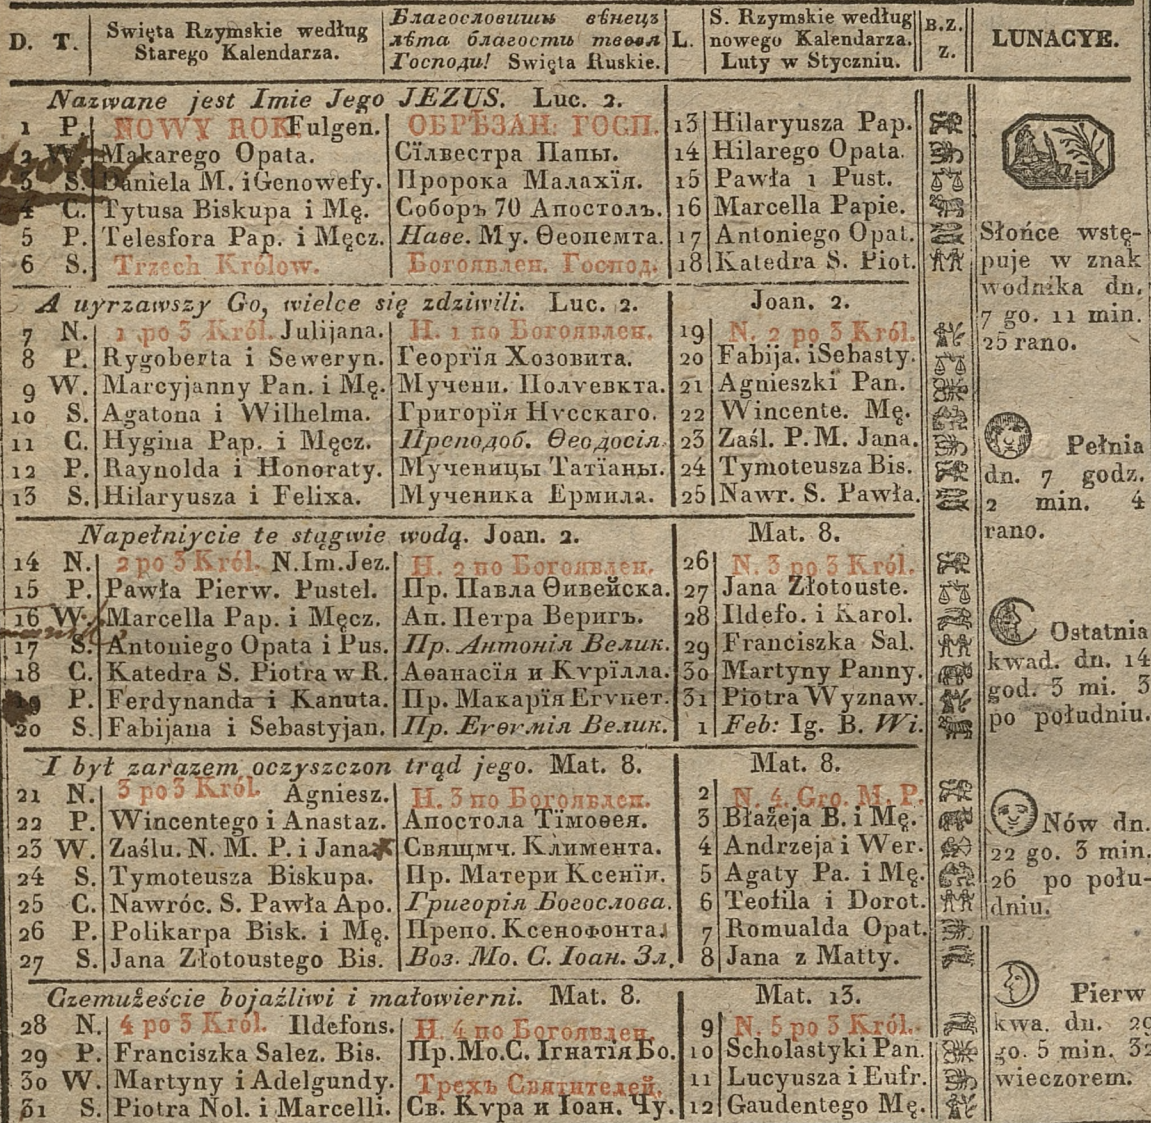 D. T. Swięta Rzymskie według Starego Kalendarza. Благословиши вѣнецъ лѣта благости твоея Господи! Swięta Ruskie. L. S. Rzymskie według nowego Kalendarza. Luty w Styczniu. B.Z. z. LUNACYE.
Nazwane jest Imie Jego JEZUS. Luc. 2.
1 P. NOWY ROK Fulgen. ОБРѢЗАН: ГОСП. 13 Hilaryusza Pap.
2 W. Makarego Opata. Сїлвестра Папы. 14 Hilarego Opata.
3 S. Daniela M. i Genowefy. Пророка Малахїя. 15 Pawła 1 Pust.
4 C. Tytusa Biskupa i Mę. Соборъ 70 Апостолъ. 16 Marcella Papie.
5 P. Telesfora Pap. i Męcz. Наве. Му. Ѳеопемта. 17 Antoniego Opat.
6 S. Trzech Królow. Богоявлен. Господ. 18 Katedra S. Piot.
A uyrzawszy Go, wielce się zdziwili. Luc. 2. Joan. 2.
7 N. 1 po 3 Król. Julijana. Н. 1 по Богоявлен. 19 N. 2 po 3 Król.
8 P. Rygoberta i Seweryn. Георгїя Хозовита. 20 Fabija. i Sebasty.
9 W. Marcyjanny Pan. i Mę. Мучени. Полѵевкта. 21 Agnieszki Pan.
10 S. Agatona i Wilhelma. Григорїя Нѵсскаго. 22 Wincente. Mę.
11 C. Hygina Pap. i Męcz. Преподоб. Ѳеодосія 23 Zaśl. P. M. Jana.
12 P. Raynolda i Honoraty. Мученицы Татїаны. 24 Tymoteusza Bis.
13 S. Hilaryusza i Felixa. Мученика Ермила. 25 Nawr. S. Pawła.
Napełniycie te stągwie wodą. Joan. 2. Mat. 8.
14 N. 2 po 3 Król. N. Im. Jez. Н. 2 по Богоявлен. 26 N. 3 po 3 Król.
15 P. Pawła Pierw. Pustel. Пр. Павла Ѳивейска. 27 Jana Złotouste.
16 W. Marcella Pap. i Męcz. Ап. Петра Веригъ. 28 Ildefo. i Karol.
17 S. Antoniego Opata i Pus. Пр. Антонія Велик. 29 Franciszka Sal.
18 C. Katedra S. Piotra w R. Аѳанасїя и Кѵрїлла. 30 Martyny Panny.
19 P. Ferdynanda i Kanuta. Пр. Макарїя Егѵпет. 31 Piotra Wyznaw.
20 S. Fabijana i Sebastyjan. Пр. Велик. 1 Feb: Ig. B. Wi.
I był zarazem oczyszczon trąd jego. Mat. 8. Mat. 8.
21 N. 3 po 3 Król. Agniesz. Н. 3 по Богоявлен. 2 N. 4. Gro. M. P.
22 P. Wincentego i Anastaz. Апостола Тїмоѳея. 3 Błażeja B. i Mę.
23 W. Zaślu. N. M. P. i Jana Свящмч. Климента. 4 Andrzeja i Wer.
24 S. Tymoteusza Biskupa. Пр. Матери Ксенїи. 5 Agaty Pa. i Mę.
25 C. Nawróc. S. Pawła Apo. Григорія Богослова. 6 Teofila i Dorot.
26 P. Polikarpa Bisk. i Mę. Препо. Ксенофонта. 7 Romualda Opat.
27 S. Jana Złotoustego Bis. Воз. Мо. С. Іоан. Зл. 8 Jana z Matty.
Czemużeście bojaźliwi i małowierni. Mat. 8. Mat. 13.
28 N. 4 po 3 Król. Ildefons. Н. 4 по Богоявлен. 9 N. 5 po 3 Król.
29 P. Franciszka Salez. Bis. Пр. Мо. С. Ігнатїя Бо. 10 Scholastyki Pan.
30 W. Martyny i Adelgundy. Трехъ Святителей. 11 Lucyusza i Eufr.
31 S. Piotra Nol. i Marcelli. Св. Кѵра и Іоан. Чу. 12 Gaudentego Mę.
Słońce wstę-
puje w znak
wodnika dn.
7 go. 11 min.
25 rano.
Pełnia
dn. 7 godz.
2 min. 4
rano.
Ostatnia
kwad. dn. 14
god. 3 mi. 3
po południu.
Nów dn.
22 go. 3 min.
26 po połu-
dniu.
Pierw
kwa. dn. 29
go. 5 min. 32
wieczorem.